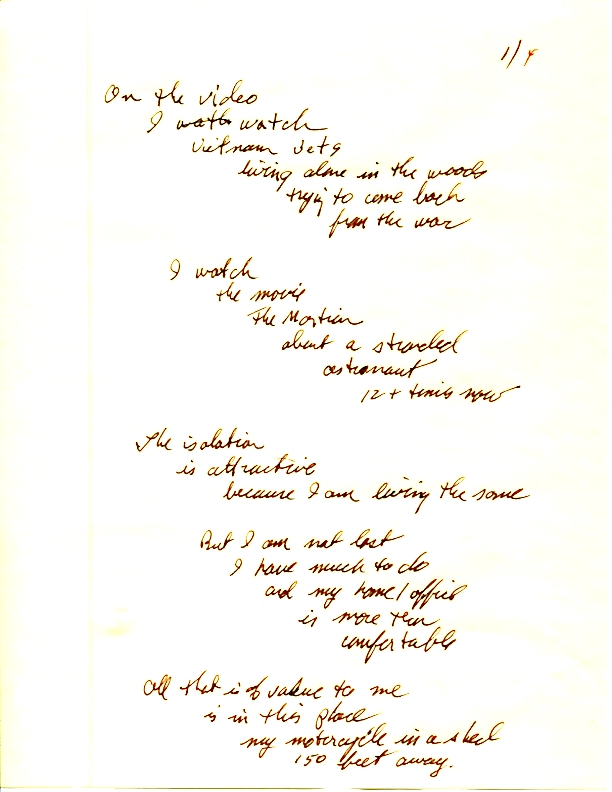 1/4
On the video
I wath watch
Vietnam Vets
living alone in the woods
trying to come back
from the war
I watch
the movie
The Martian
about a stranded
astronaut
12+ times now
The isolation
is attractive
because I am living the same
But I am not lost
I have much to do
and my home/office
is more than
comfortable
All that is of value to me
is in this place
my motorcycle in a shed
150 feet away.